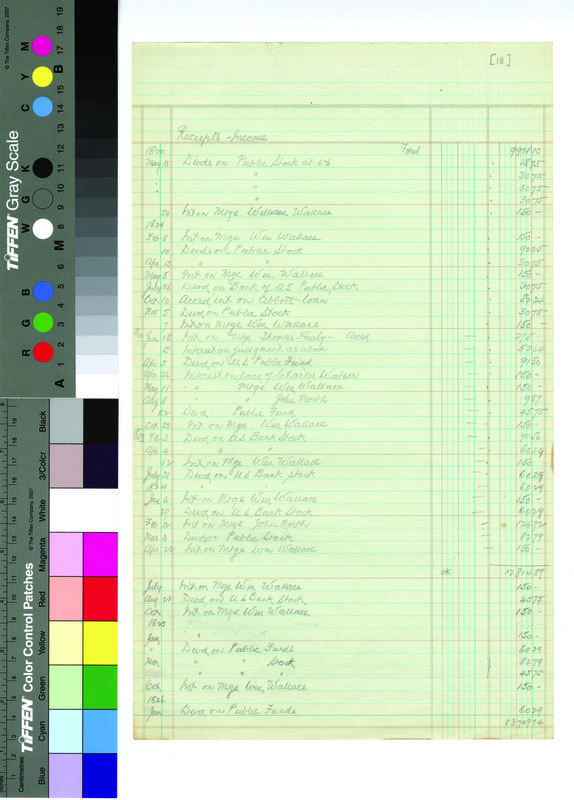 © The Tiffen Company, 2007
TIFFEN Gray Scale
R G B W G K C Y M
A 1 2 3 4 5 6 M 8 9 10 11 12 13 14 15 B 17 18 19
TIFFEN Color Control Patches
© The Tiffen Company, 2007
Centimetres
Blue Cyan Green Yellow Red Magenta White 3/Color Black
[18]
Receipts - Income
Divds on Public Stock at 6%
"
"
"
20 Int on Mtge William Wallace 150 -
1821
Feb Int on Mtge Wm Wallace 150 -
10 Divds on Public Stock
Apr " " 3075
May 5 Int on Mge Wm Wallace 150 -
July Divd on Bank of US Public Stock 3075
Oct 10 Accrd int on Abbott loan
Nov 5 Divd on Public Stock 3075
7 Int on Mtge Wm Wallace 150 -
Jan Int on Mtge Thomas Accrd
Interest on judgment as above
Apr 5 Divd on U.S Public Fund 9150
Apr 26 Interest on loan of Charles Watson 150 -
May 11 " " Mtge Wm Wallace 150 -
Aug 8 " " John North 987
22 Divd Public Fund 4575
Oct 23 Int on Mge Wm Wallace 150 -
Feb Divd on US Bank Stock
Apr 4 " " 6029
12 Int on Mge Wm Wallace 150
July 21 Divd on US Bank stock 6029
1824 " 6029
Jan 6 Int on Mtge Wm Wallace 150 -
Divd on U.S Bank Stock 6029
Feb Int on Mge John North 12472
Mar 3 Divd on Public Stock 8279
Apr 22 Int on Mtge Wm Wallace 150 -
OK 1281487
July Int on Mge Wm Wallace 150 -
Aug Divd on US Bank Stock 4575
Oct Int on Mge Wm Wallace 150 -
1825
Jan " " 150 -
" Divd on Public Funds 6029
Nov " " Stock 8279
" " " 4575
Oct Int on Mge Wm Wallace 150 -
1826
Jan Divd on Public Funds 6029
1370974